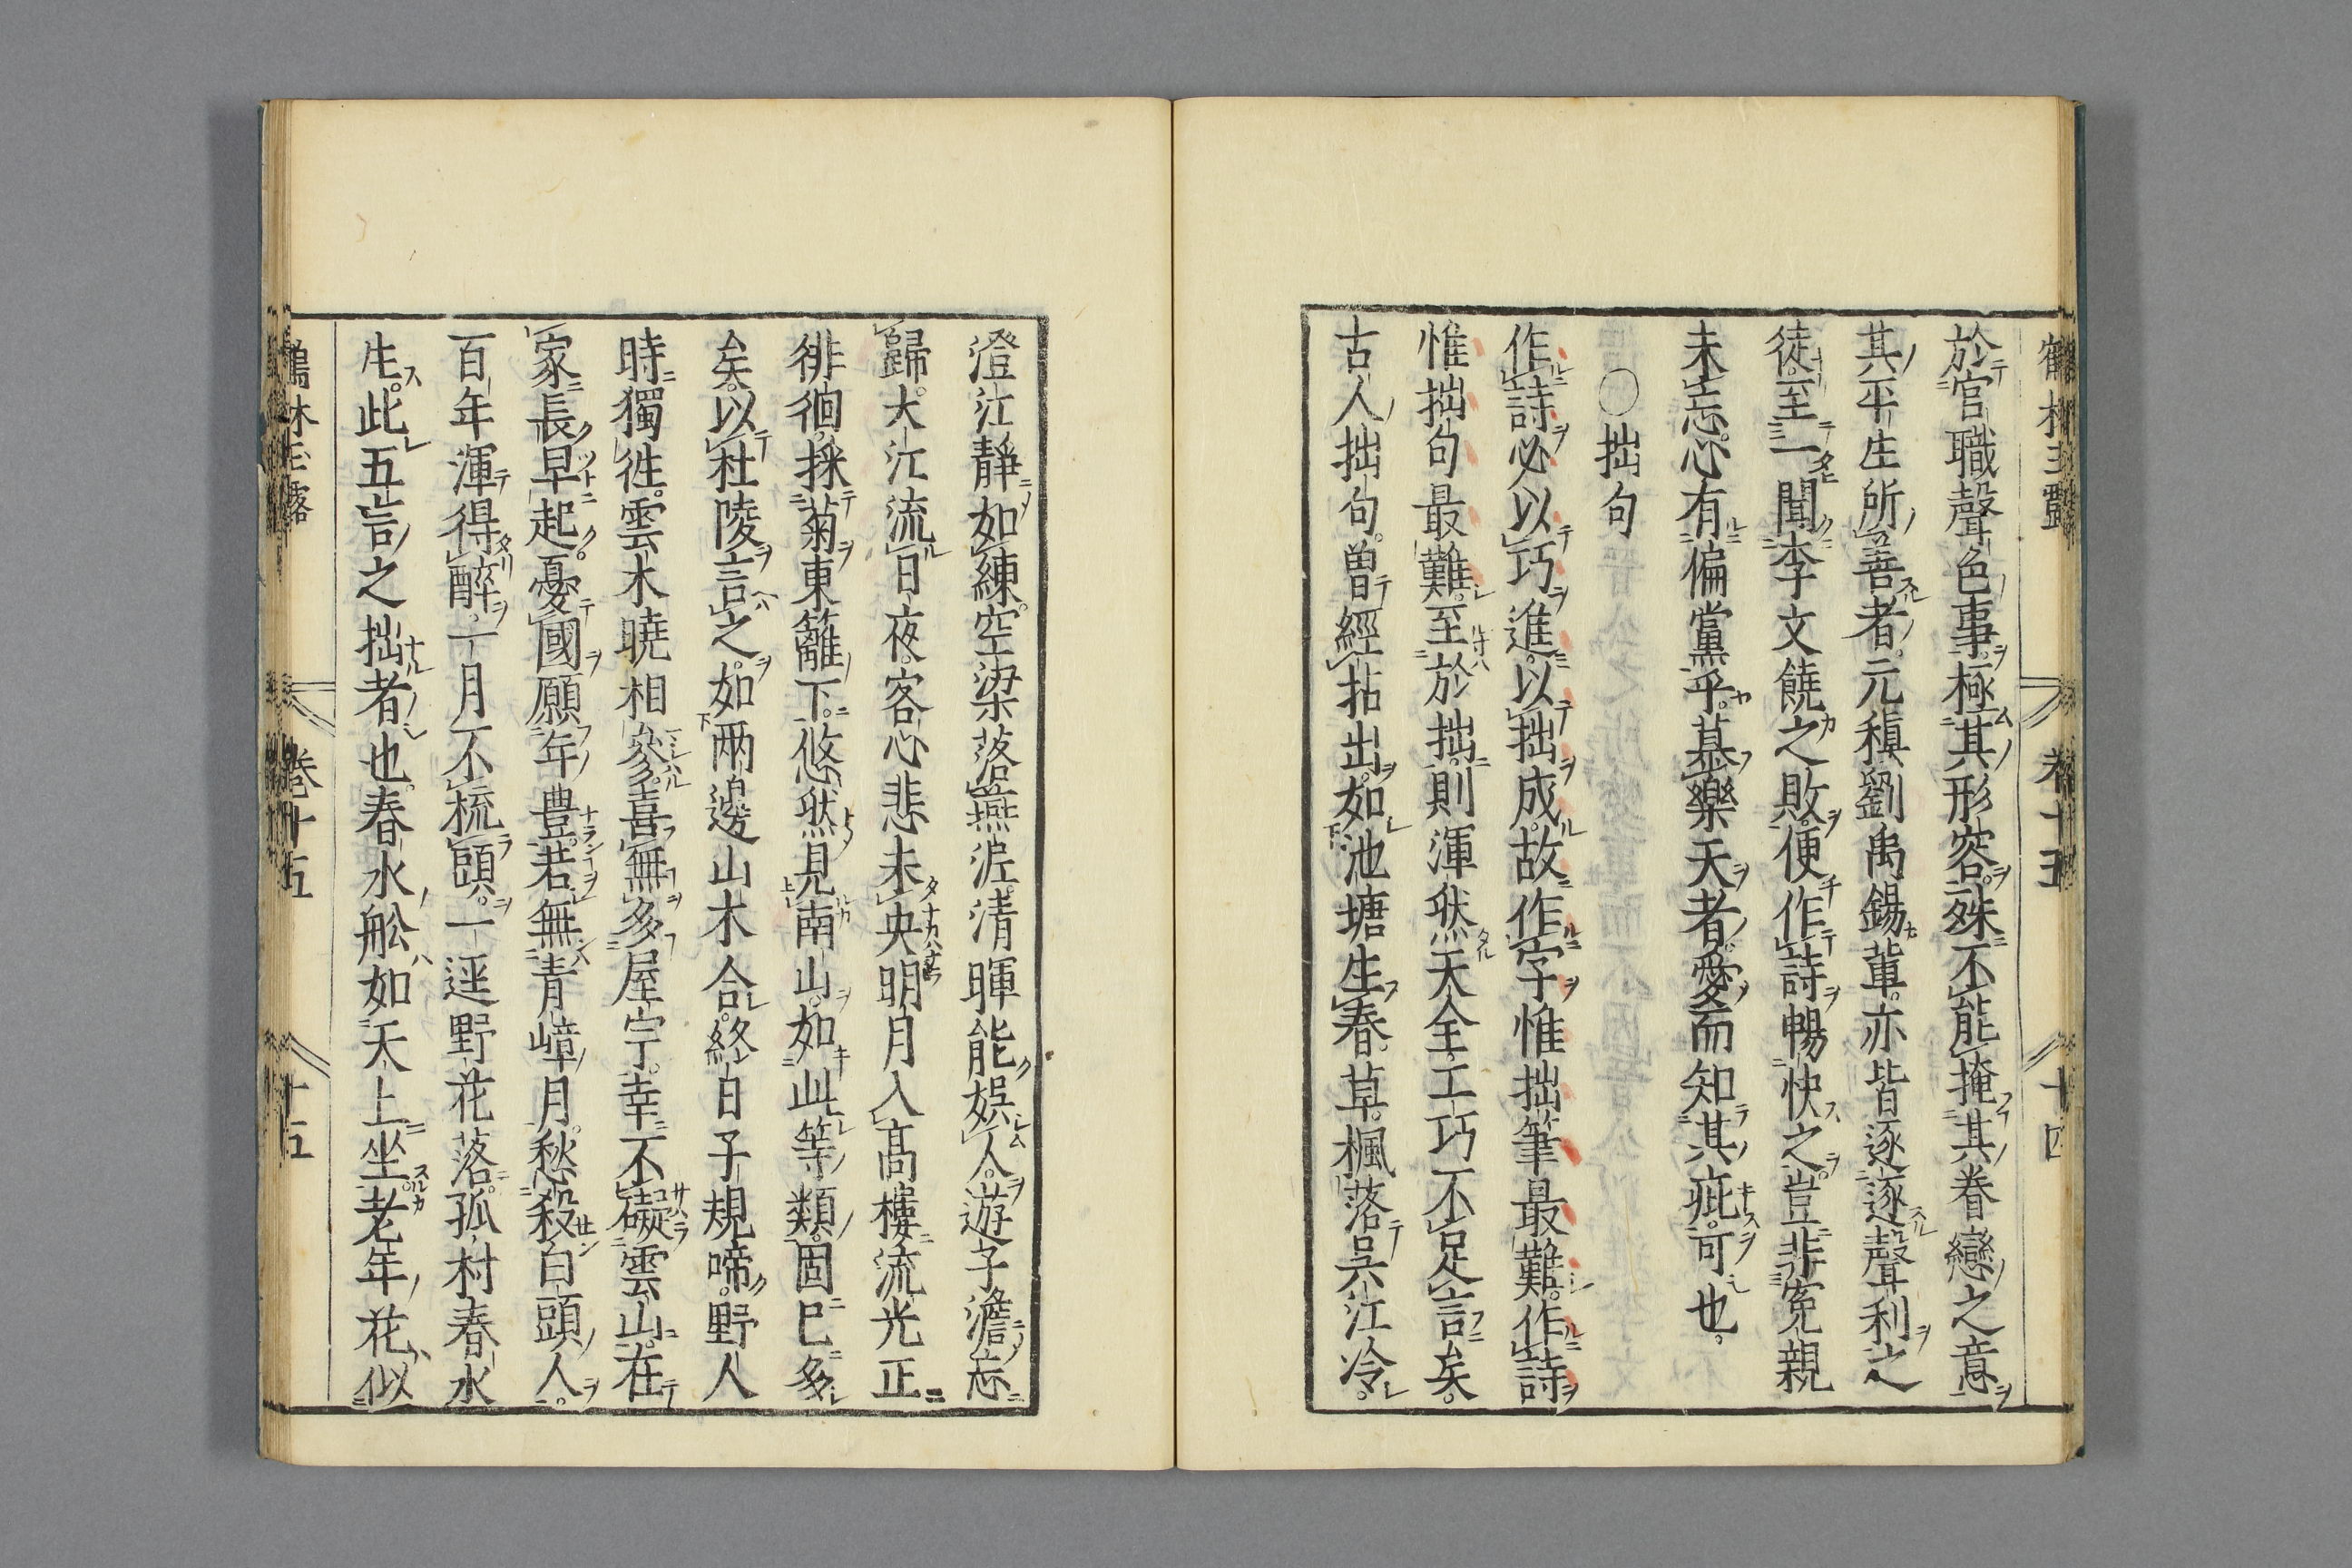 鶴林玉露 卷十五 十四
於官職聲色事極其形容殊不能掩其眷戀之意
其平生所善者元稹劉禹錫軰亦皆逐逐聲利之
徒至一聞李文饒之敗便作詩暢快之豈非寃親
未忘心有偏黨乎慕樂天者愛而知其疵可也
○拙句
作詩必以巧進以拙成故作字惟拙筆最難作詩
惟拙句最難至於拙則渾然天全工巧不足言矣
古人拙句曽經拈出如池塘生春草楓落吳江冷
澄江靜如練空梁落燕泥清暉能娛人遊子澹忘
歸大江流日夜客心悲未央明月入高樓流光正
徘徊採菊東籬下悠然見南山如此等類固已多
矣以杜陵言之如兩邊山木合終日子規啼野人
時獨徃雲木曉相參喜無多屋宇幸不礙雲山在
家長早起憂國願年豊若無青嶂月愁殺白頭人
百年渾得醉一月不梳頭一逕野花落孤村春水
生此五言之拙者也春水舩如天上坐老年花似
鶴林玉露 卷十五 十五